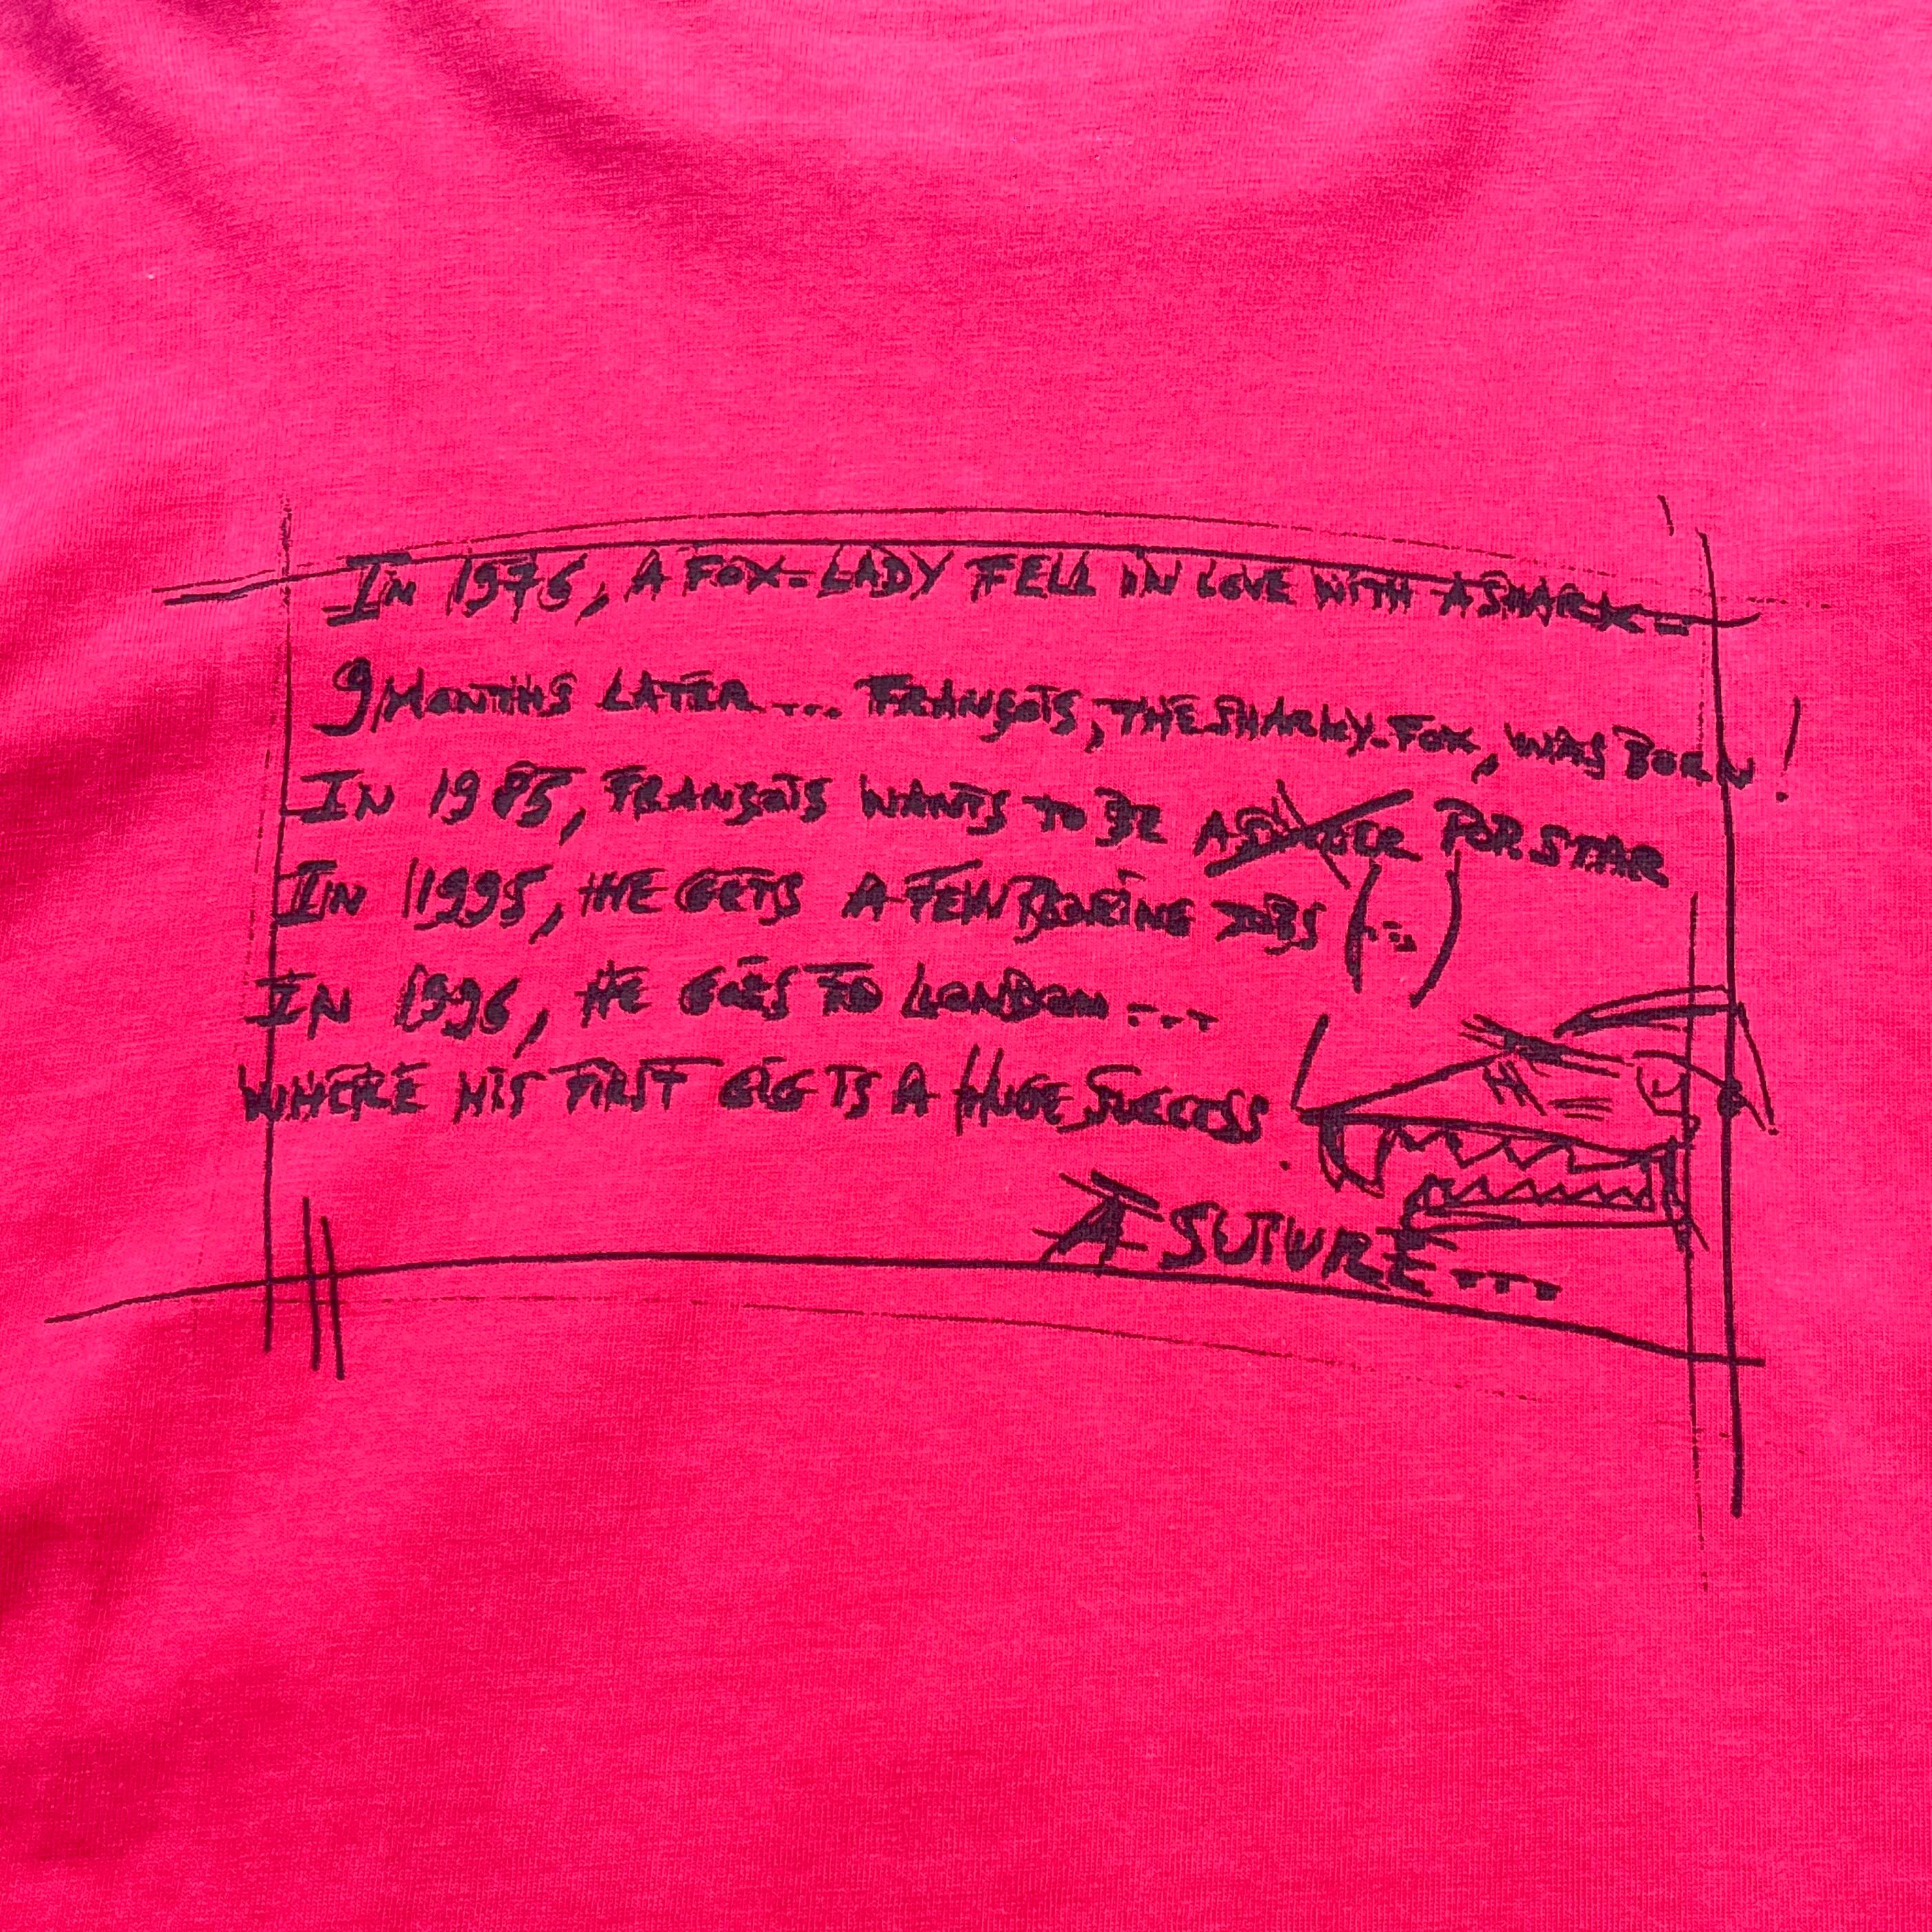 IN 1976, A FOX-LADY FELL IN LOVE WITH A SHARK-
9 MONTHS LATER... FRANÇOIS, THE SHARKY-FOX, WAS BORN!
IN 1985, FRANÇOIS WANTS TO BE A POP STAR
IN 1995, HE GETS A FEW BORING JOBS (...)
IN 1996, HE GOES TO LONDON...
WHERE HIS FIRST GIG IS A HUGE SUCCESS!
A SUIVRE...